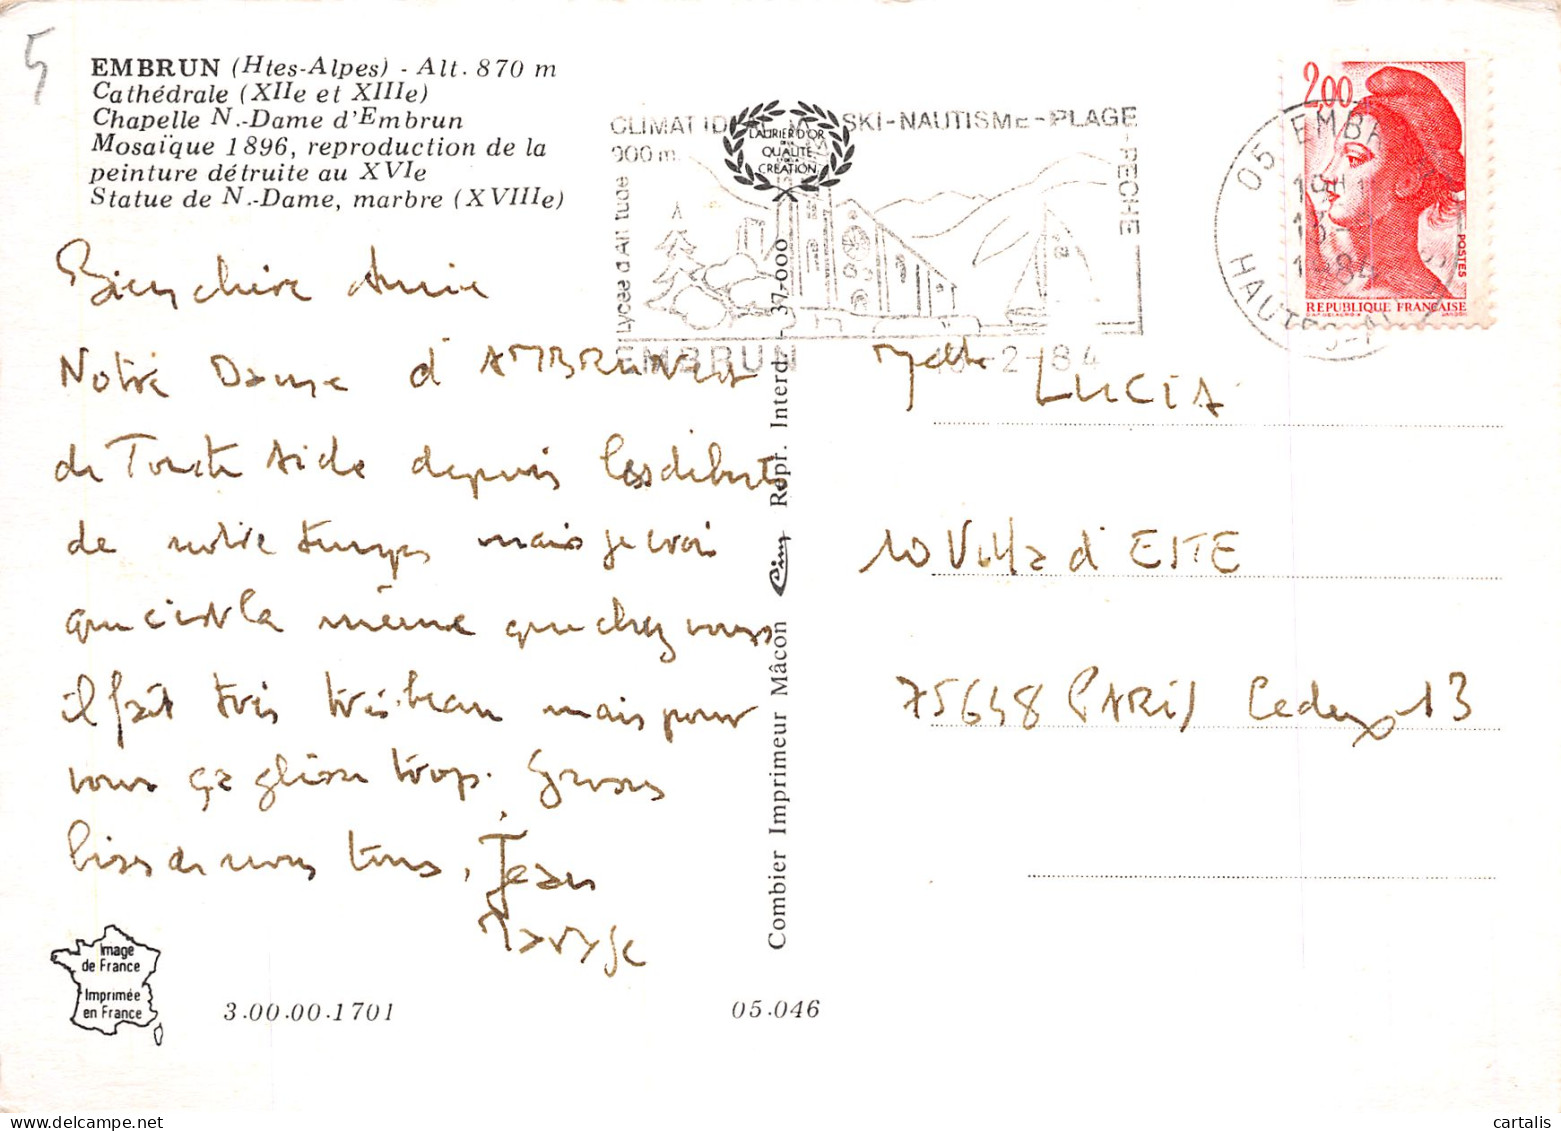 5
EMBRUN (Htes-Alpes) - Alt. 870 m
Cathédrale (XIIe et XIIIe)
Chapelle N.-Dame d'Embrun
Mosaïque 1896, reproduction de la
peinture détruite au XVIe
Statue de N.-Dame, marbre (XVIIIe)
CLIMAT SKI-NAUTISME-PLAGE
-PECHE
900 m
Lycée d'Altitude
EMBRUN
-2-84
LAURIER D'OR
QUALITÉ
CRÉATION
05 EMBR
HAUTES-A
2,00
POSTES
REPUBLIQUE FRANÇAISE
Bien chère Annie
Notre Dame d'AMBRUN est
de Toute Aide depuis les débuts
de notre temps mais je crois
que c'est la même que chez vous
il fait très très beau mais pour
vous ça glisse trop. Grosses
bises de nous tous, Jean
Maryse
Melle LUCIA
10 Villa d'ESTE
75648 PARIS Cedex 13
Combier Imprimeur Mâcon Cim Repr. Interd. - 37-000
Image
de France
Imprimée
en France
3.00.00.1701
05.046
cartalis